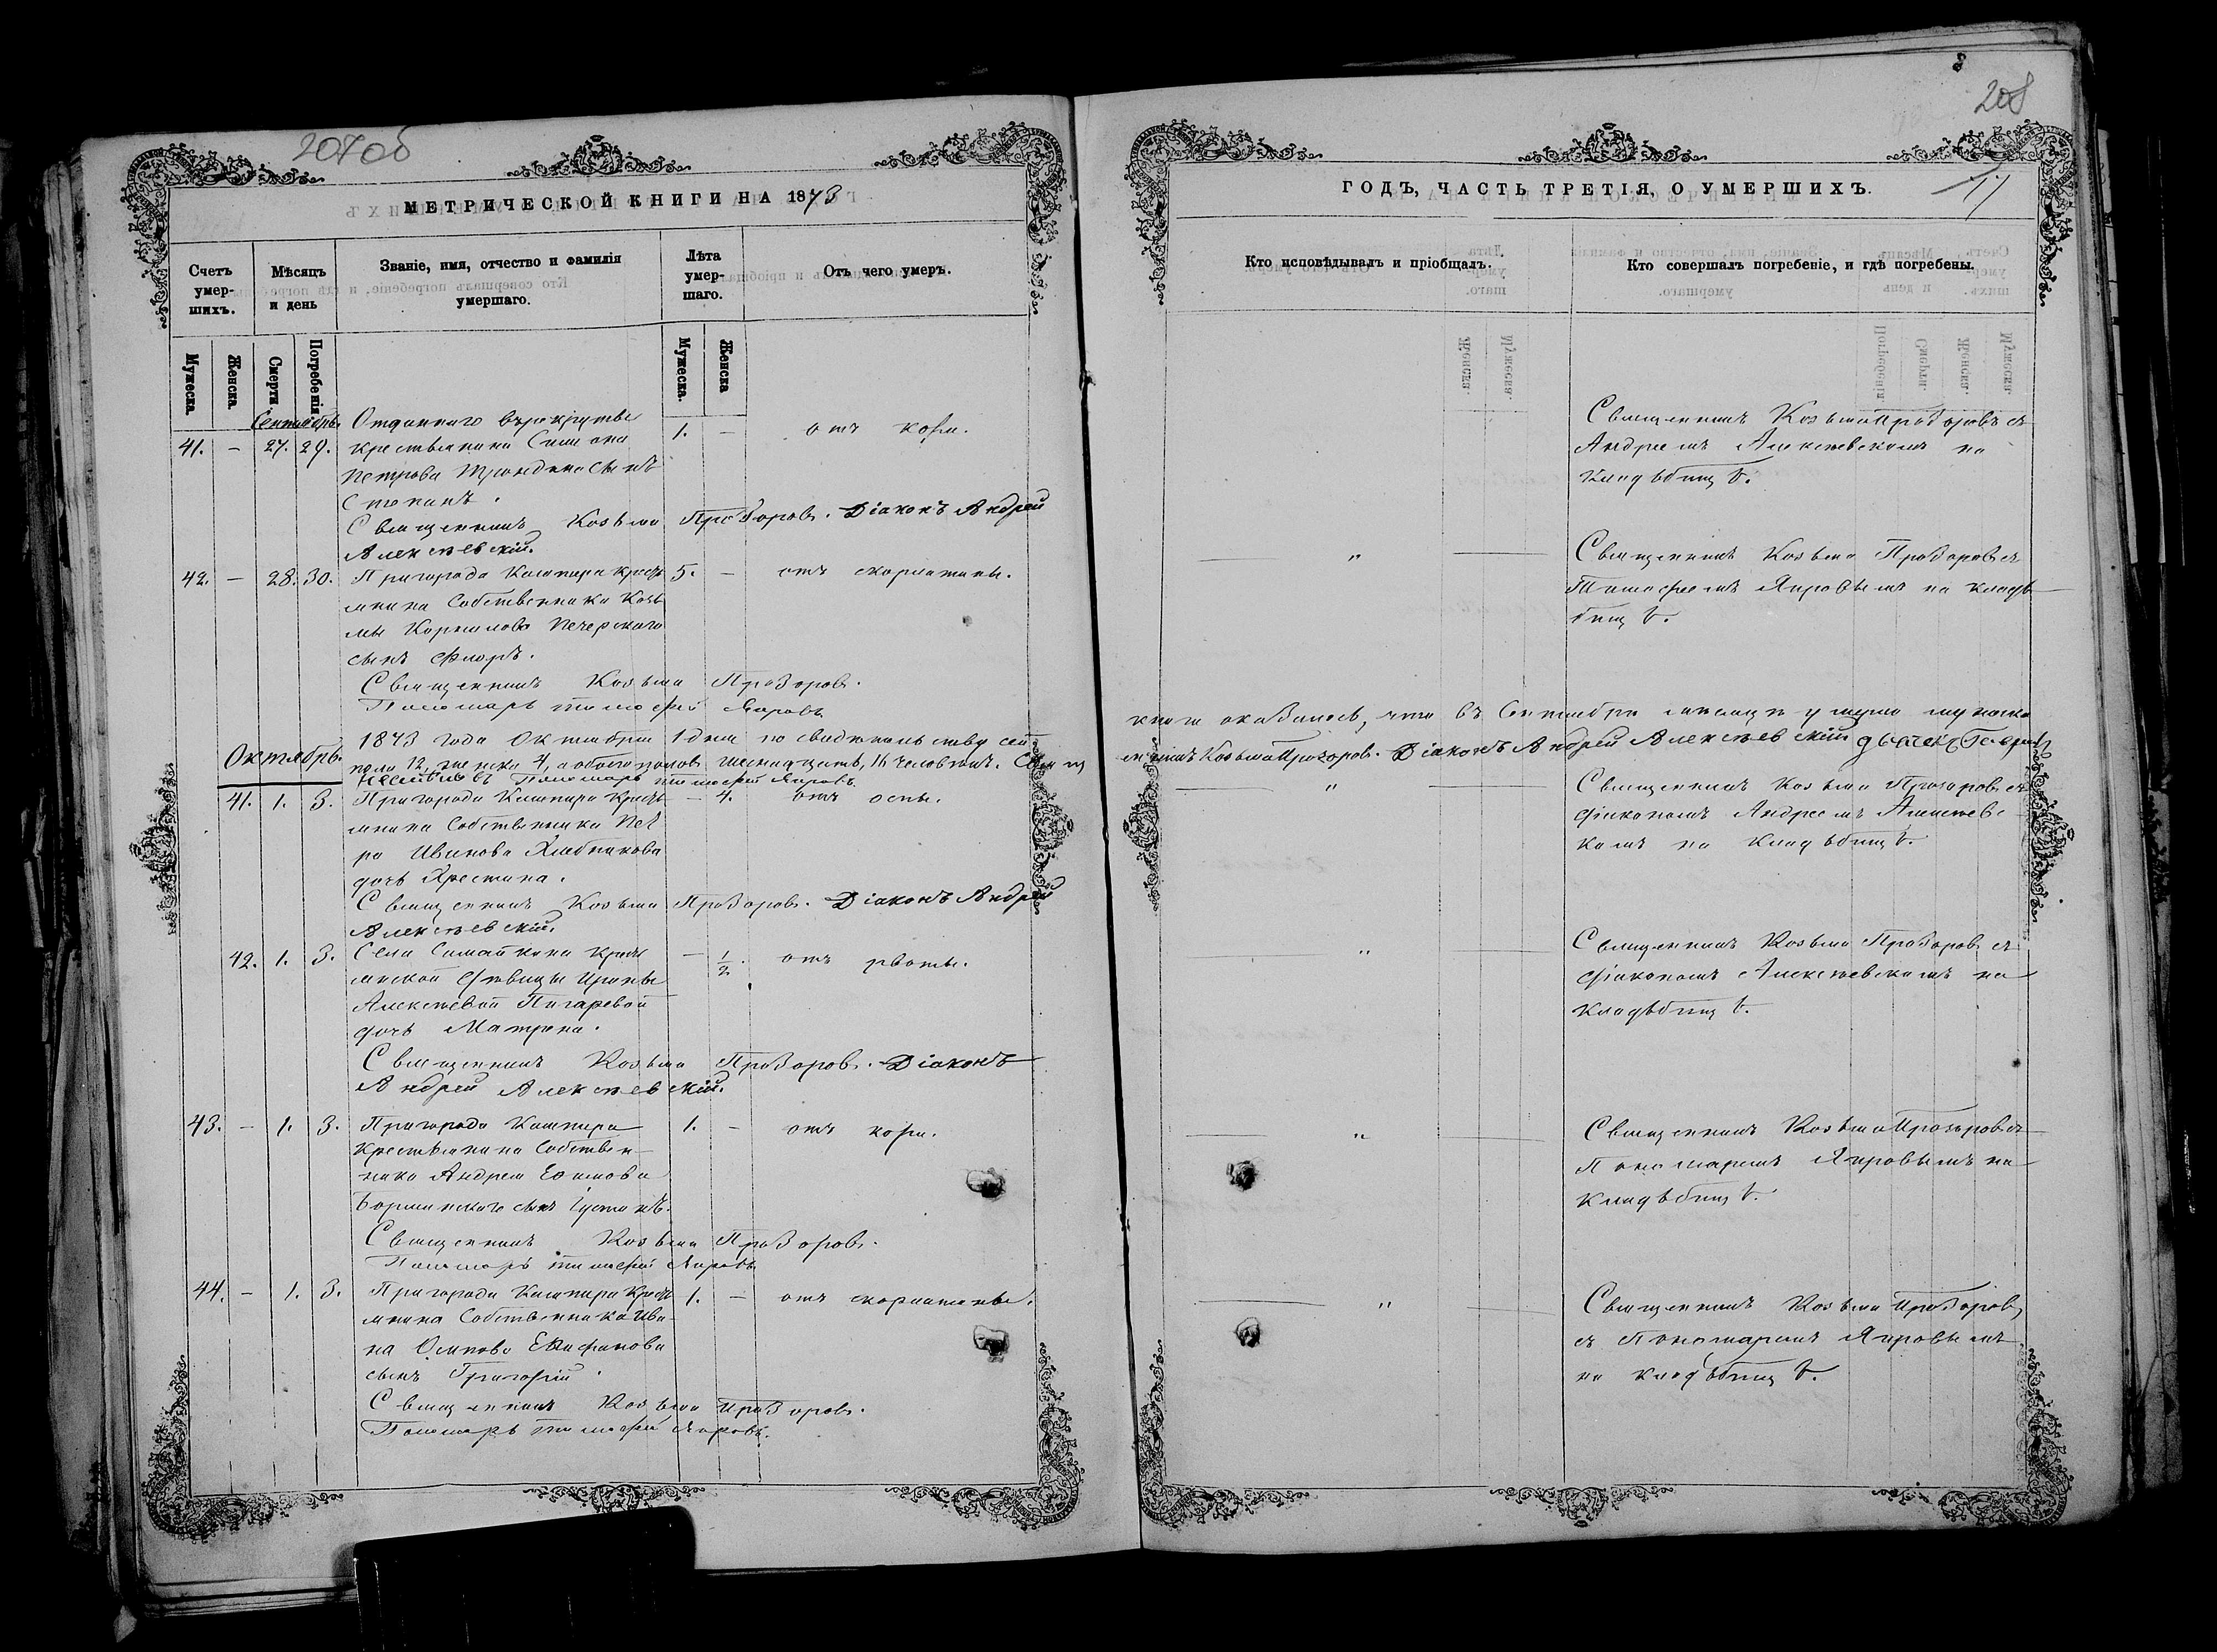 207об
МЕТРИЧЕСКОЙ КНИГИ НА 1873
Счетъ умер-шихъ.
Мѣсяцъ и день
Званіе, имя, отчество и фамилія умершаго.
Лѣта умер-шаго.
Отъ чего умеръ.
Мужеска.
Женска.
Смерти
Погребенія
Мужеска.
Женска
Сентябрь.
41. – 27. 29.
Отданнаго въ рекруты
крестьянина Симеона
Петрова сынъ
Степанъ.
1. –
отъ кори.
Священникъ Козьма Прозоровъ. Діаконъ Андрей
Алексѣевскій.
42. – 28. 30.
Пригорода Кашпира кресть
янина Собственника Козь
мы Корнилова Печерскаго
сынъ Флоръ.
5. –
отъ скарлатины.
Священникъ Козьма Прозоровъ.
Пономарь Тимофей Яировъ
Октябрь.
1873 года Октября 1 дня по свидѣтельству сей
пола 12, женска 4, а обоего половъ шестнадцать, 16 человѣкъ. Свящ
Пономарь Тимофей Яировъ.
41. 1. 3.
Пригорода Кашпира кресть
янина Собственника Пет
ра Иванова Хлебникова
дочь Христина.
– 4.
отъ оспы.
Священникъ Козьма Прозоровъ. Діаконъ Андрей
Алексѣевскій.
42. 1. 3.
Села Самайкина кресть
янской дѣвицы Ирины
Алексѣевой Пигаревой
дочь Матрена.
– 1/2.
отъ рвоты.
Священникъ Козьма Прозоровъ. Діаконъ
Андрей Алексѣевскій.
43. – 1. 3.
Пригорода Кашпира
крестьянина Собствен-
ника Андрея Ефимова
сынъ Іустинъ.
1. –
отъ кори.
Священникъ Козьма Прозоровъ.
Пономарь Тимофей Яировъ
44. – 1. 3.
Пригорода Кашпира кресть
янина Собственника Ива-
на Осипова Епифанова
сынъ Григорій.
1. –
отъ скарлатины.
Священникъ Козьма Прозоровъ.
Пономарь Тимофей Яировъ.
208
ГОДЪ, ЧАСТЬ ТРЕТІЯ, О УМЕРШИХЪ.
11
Кто исповѣдывалъ и пріобщалъ.
Кто совершалъ погребеніе, и гдѣ погребены.
Священникъ Козьма Прозоровъ съ
Андреемъ Алексѣевскимъ на
кладбищѣ.
"
Священникъ Козьма Прозоровъ съ
Тимофеемъ Яировымъ на клад
бищѣ.
книги оказалось, что въ Сентябрѣ мѣсяцѣ умерло мужеска
енникъ Козьма Прозоровъ. Діаконъ Андрей Алексѣевскій
"
Священникъ Козьма Прозоровъ съ
діакономъ Андреемъ Алексѣевс
кимъ на кладбищѣ.
"
Священникъ Козьма Прозоровъ съ
діакономъ Алексѣевскимъ на
кладбищѣ.
"
Священникъ Козьма Прозоровъ съ
Пономаремъ Яировымъ на
кладбищѣ.
"
Священникъ Козьма Прозоровъ
съ Пономаремъ Яировымъ
на кладбищѣ.